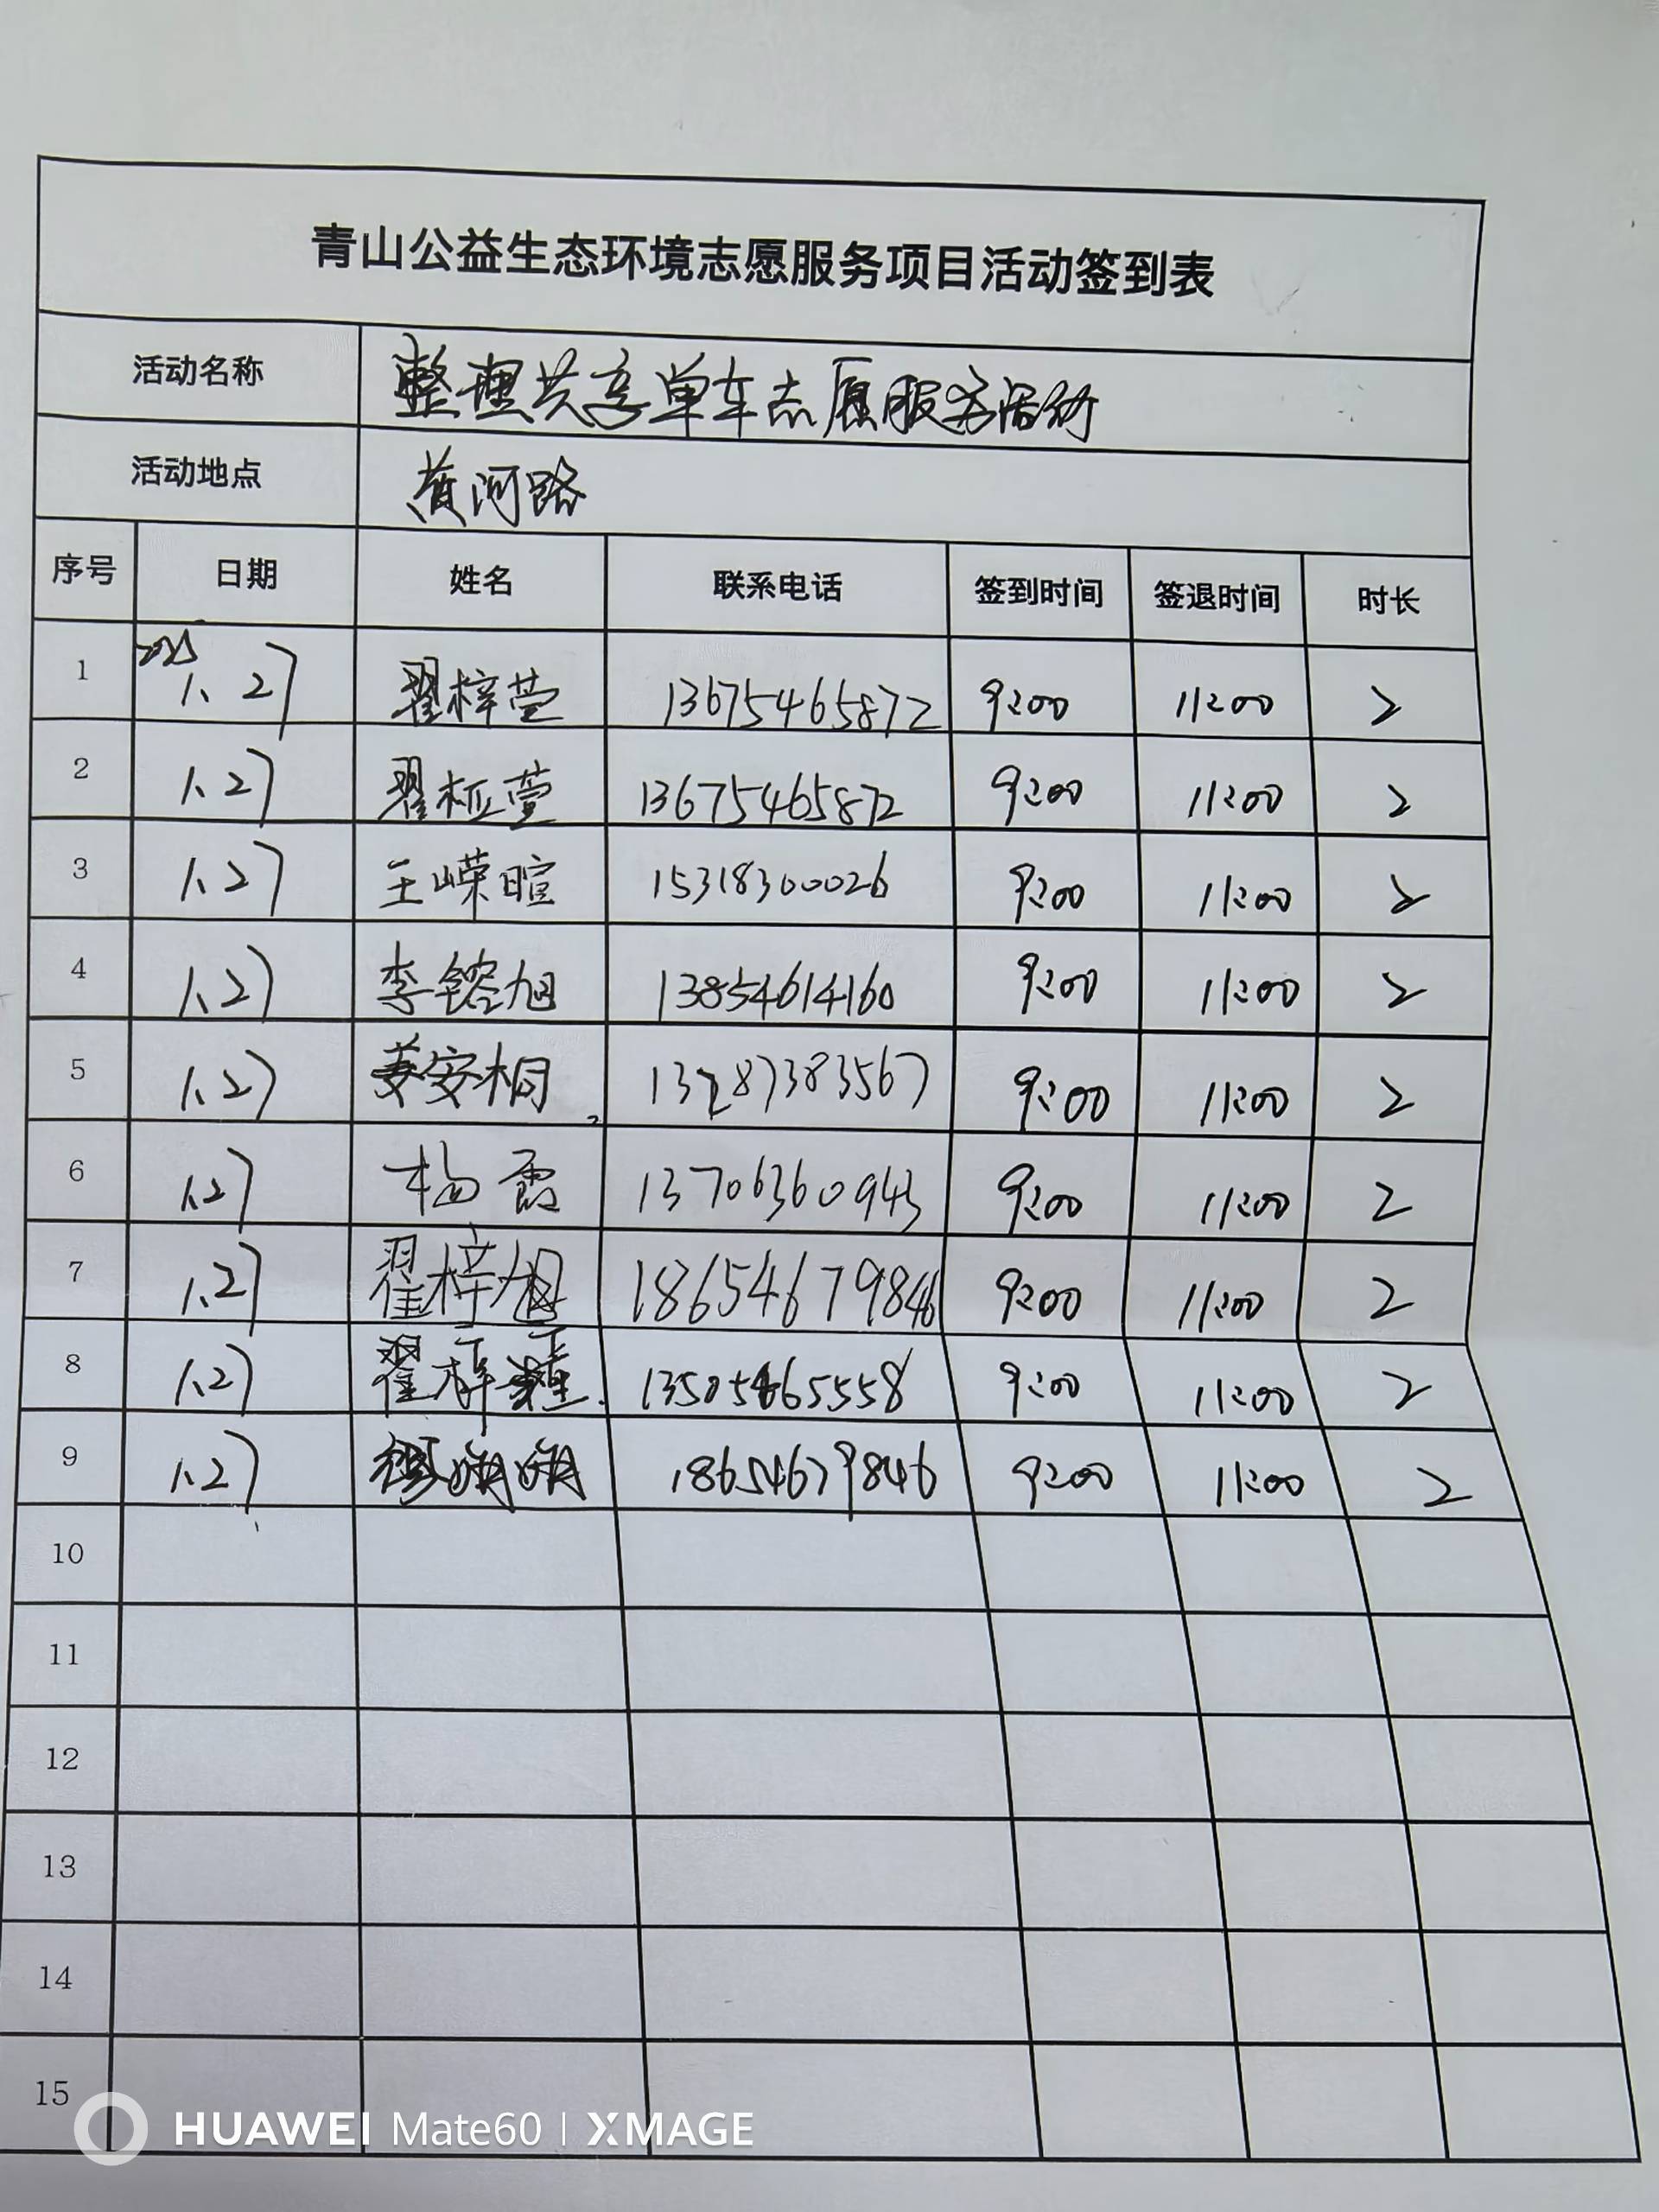 青山公益生态环境志愿服务项目活动签到表
活动名称 整理共享单车志愿服务活动
活动地点 黄河路
序号 日期 姓名 联系电话 签到时间 签退时间 时长
1 2025 1.27 翟梓萱 13675465872 9:00 11:00 2
2 1.27 翟桠萱 13675465872 9:00 11:00 2
3 1.27 王嵘暄 15318300026 9:00 11:00 2
4 1.27 李镕旭 13854614160 9:00 11:00 2
5 1.27 姜安桐 13287383567 9:00 11:00 2
6 1.27 杨霞 13706360943 9:00 11:00 2
7 1.27 翟梓旭 18654679846 9:00 11:00 2
8 1.27 翟梓 13505465558 9:00 11:00 2
9 1.27 18654679846 9:00 11:00 2
10
11
12
13
14
15
HUAWEI Mate60 | XMAGE